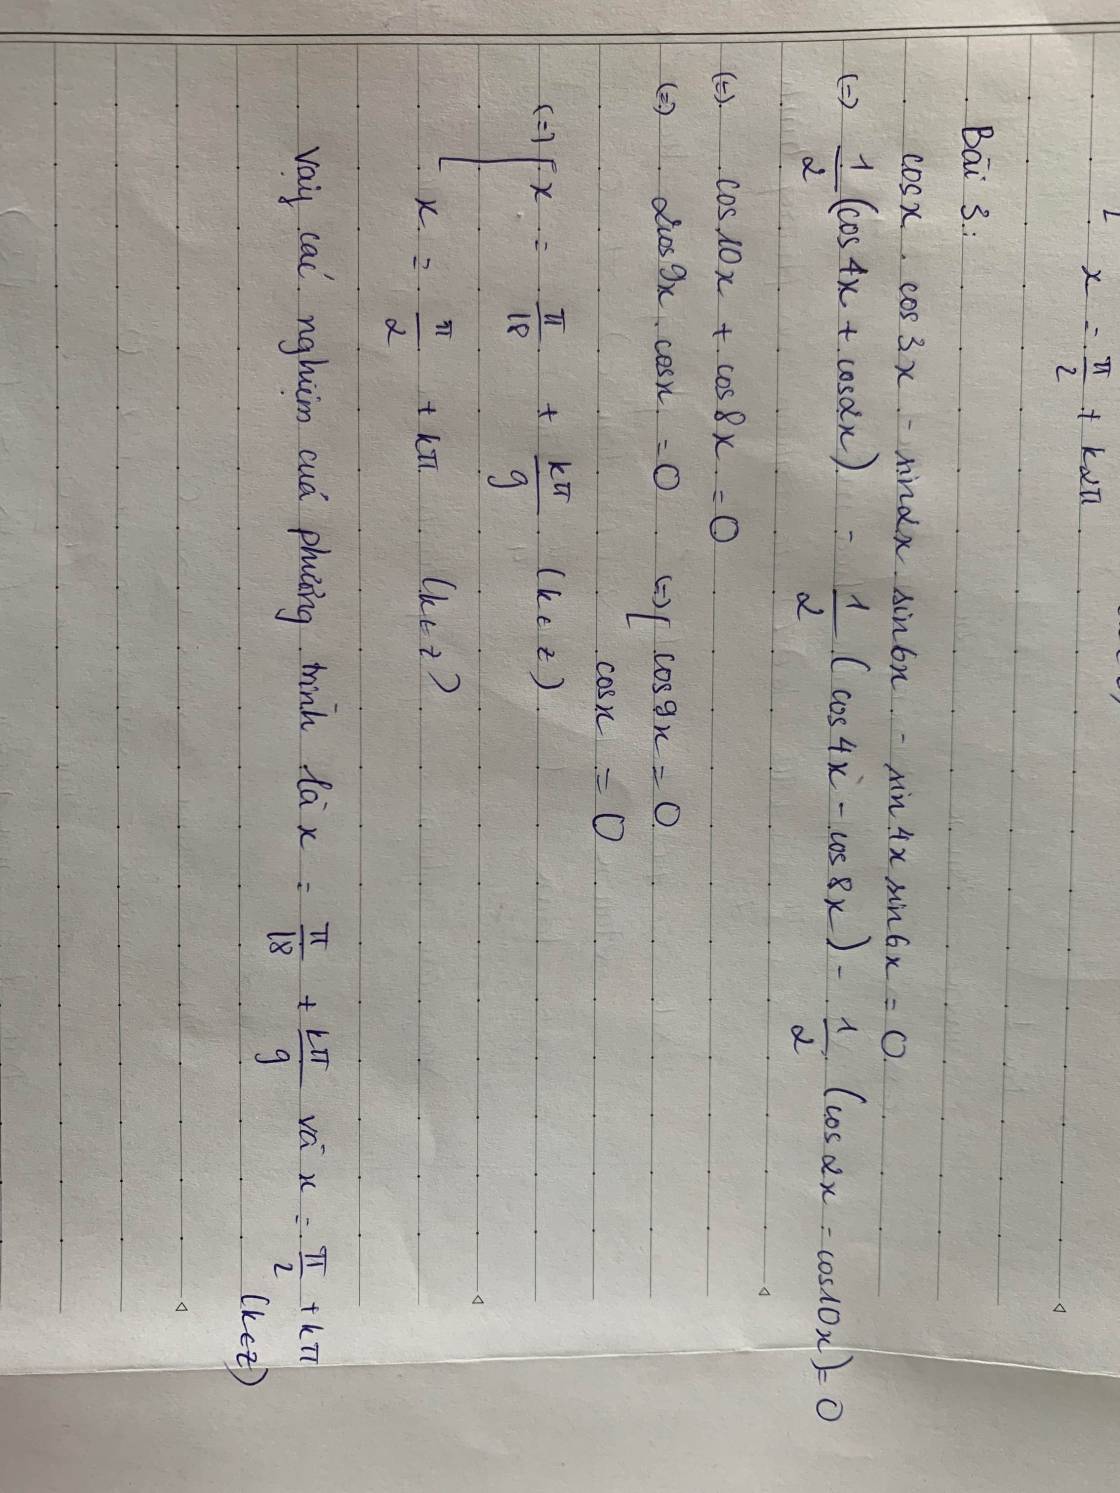 x = π/2 + k2π
Bài 3:
cosx . cos 3x - sin2x sin6x - sin4x sin6x = 0
(=) 1/2 (cos 4x + cos2x) - 1/2 (cos 4x - cos 8x) - 1/2 (cos 2x - cos10x) = 0
(=) cos10x + cos 8x = 0
(=) 2cos 9x . cosx = 0 (=) [ cos 9x = 0
cosx = 0
(=) [ x = π/18 + kπ/9 (k ∈ z)
x = π/2 + kπ (k ∈ z)
Vậy các nghiệm của phương trình là x = π/18 + kπ/9 và x = π/2 + kπ
(k ∈ z)